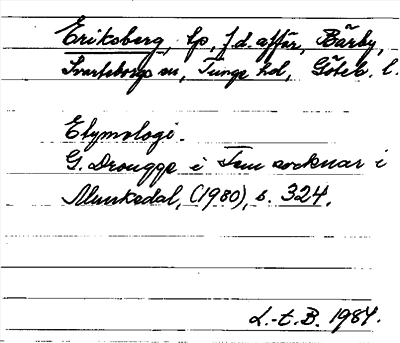 Eriksberg, lp, f.d. affär, Bärby,
Svarteborgs sn, Tunge hd, Göteb. l.
Etymologi.
G. Drougge i Fem socknar i
Munkedal, (1980), s. 324.
L.-t. B. 1984.